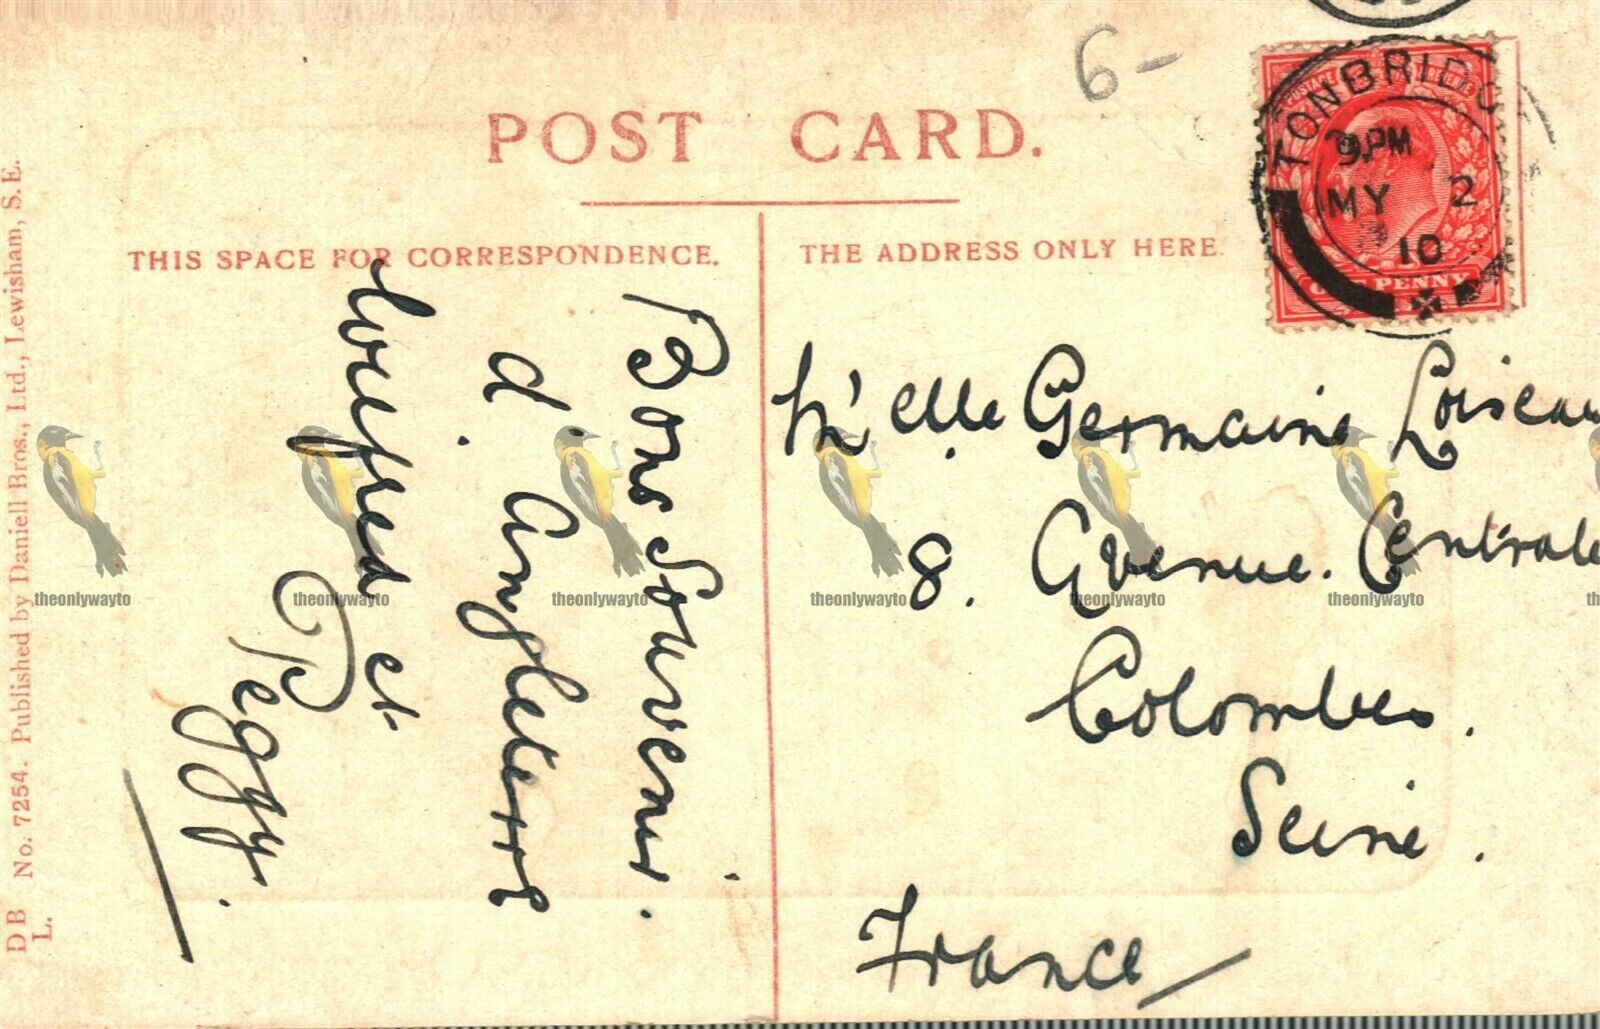 6-
POST CARD.
THIS SPACE FOR CORRESPONDENCE.
THE ADDRESS ONLY HERE.
TONBRIDG
9.PM
MY 2
10
ONE PENNY
Bons Souvenirs.
d'Angleterre
Wilfred et
Peggy.
M'elle Germaine Loiseau
8. Avenue. Centrale
Colombes.
Seine.
France
D B No. 7254. Published by Daniell Bros., Ltd., Lewisham, S.E.
L.
theonlywayto
theonlywayto
theonlywayto
theonlywayto
theonlywayto
theonlywayto
th